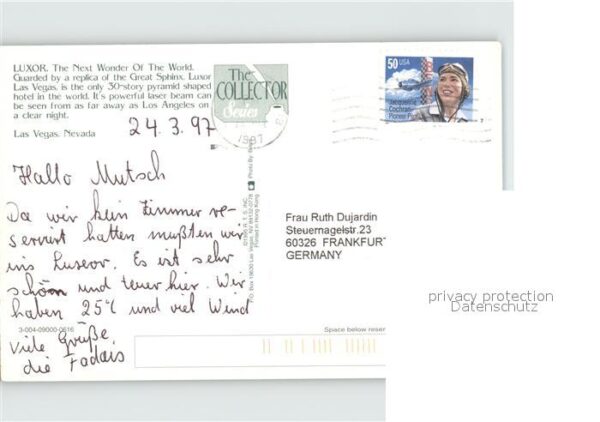 LUXOR. The Next Wonder Of The World.
Guarded by a replica of the Great Sphinx, Luxor
Las Vegas, is the only 30-story pyramid shaped
hotel in the world. It's powerful laser beam can
be seen from as far away as Los Angeles on
a clear night.
Las Vegas, Nevada
24.3.97
The
COLLECTOR
Series
1997
50 USA
Jacqueline
Cochran
Pioneer Pilot
Hallo Mutsch
Da wir kein Zimmer re-
serviert hatten mußten wir
ins Luxor. Es ist sehr
schön und teuer hier. Wir
haben 25°C und viel Wind
Viele Grüße,
die
Frau Ruth Dujardin
Steuernagelstr.23
60326 FRANKFURT
GERMANY
P.O. Box 19630 Las Vegas, NV
Printed in Hong Kong
3-004-09000-0616
Space below reser
privacy protection
Datenschutz